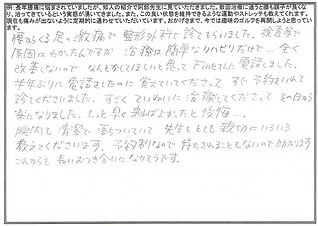 例:長年腰痛に悩まされていましたが、知人の紹介で同部先生に見ていただきました。数回治療に通うと腰も調子が良くな
り、治ってきているという実感が湧いてきました。また、この良い状態を維持できるような運動やストレッチも教えてくれます。
現在も痛みが出ないように定期的に通わせていただいています。おかげさまで、今では趣味のゴルフを再開しようと思ってい
ます。
腰からくる足の激痛で整形外科で診てもらいました。検査等で
原因はわかったんですが 治療は簡単なリハビリだけで…全く
改善しないので なんとかてほしいと思って 電話した
半年ぶりに電話をしたのに覚えていてくださって すぐ予約をいれて
診てくださいました。すごく ていねいに治療してくださって その日から
楽になりました。もっと早く来ればよかったと後悔…。
院内も清潔で落ちついていて 先生もとても親切にいろいろ
教えてくださいます。予約制なので 待たされることもないので助かります
これからも 長いおつき合いになりそうです。